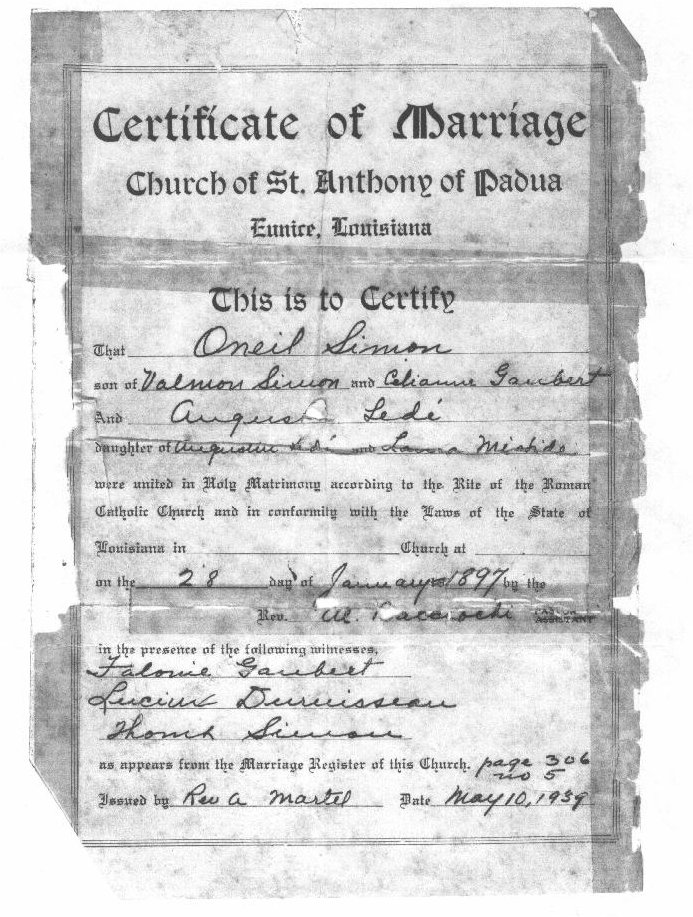 Certificate of Marriage
Church of St. Anthony of Padua
Eunice, Louisiana
This is to Certify
That Oneil Simon
son of Valmon Simon and Celianne Gaubert
And Ledé
daughter of Augustin Ledé and
were united in Holy Matrimony according to the Rite of the Roman
Catholic Church and in conformity with the Laws of the State of
Louisiana in Church at
on the 28 day of January 1897 by the
Rev. M. ASSISTANT
in the presence of the following witnesses,
Gaubert
Lucius Duruisseau
Simon
as appears from the Marriage Register of this Church. page 306
no 5
Issued by Rev A Martel Date May 10, 1939